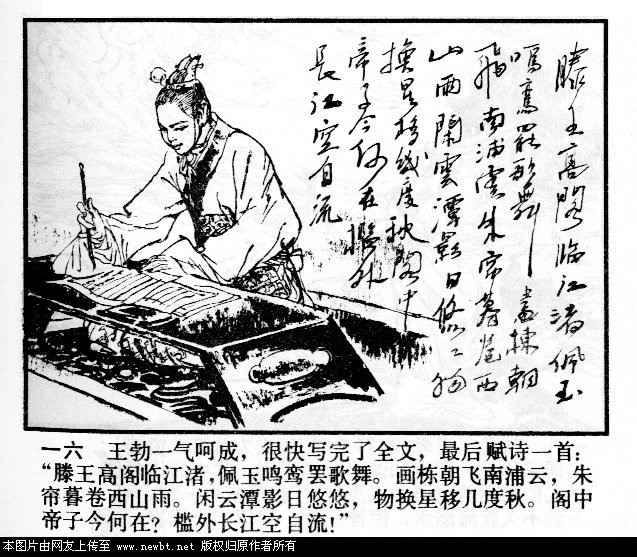 滕王高阁临江渚佩玉
鸣鸾罢歌舞画栋朝
飞南浦云朱帘暮卷西
山雨闲云潭影日悠々物
换星移几度秋阁中
帝子今何在槛外
长江空自流
一六　王勃一气呵成，很快写完了全文，最后赋诗一首：
“滕王高阁临江渚，佩玉鸣鸾罢歌舞。画栋朝飞南浦云，朱
帘暮卷西山雨。闲云潭影日悠悠，物换星移几度秋。阁中
帝子今何在？槛外长江空自流！”
本图片由网友上传至 www.newbt.net 版权归原作者所有